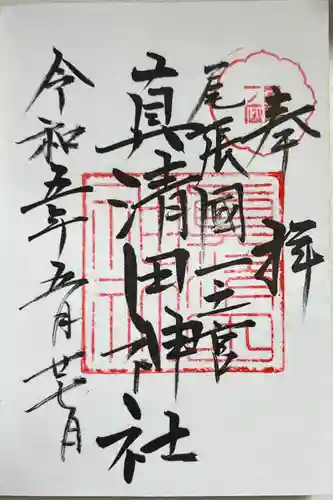 奉拝
尾張國一之宮
真清田神社
令和五年五月廿七月